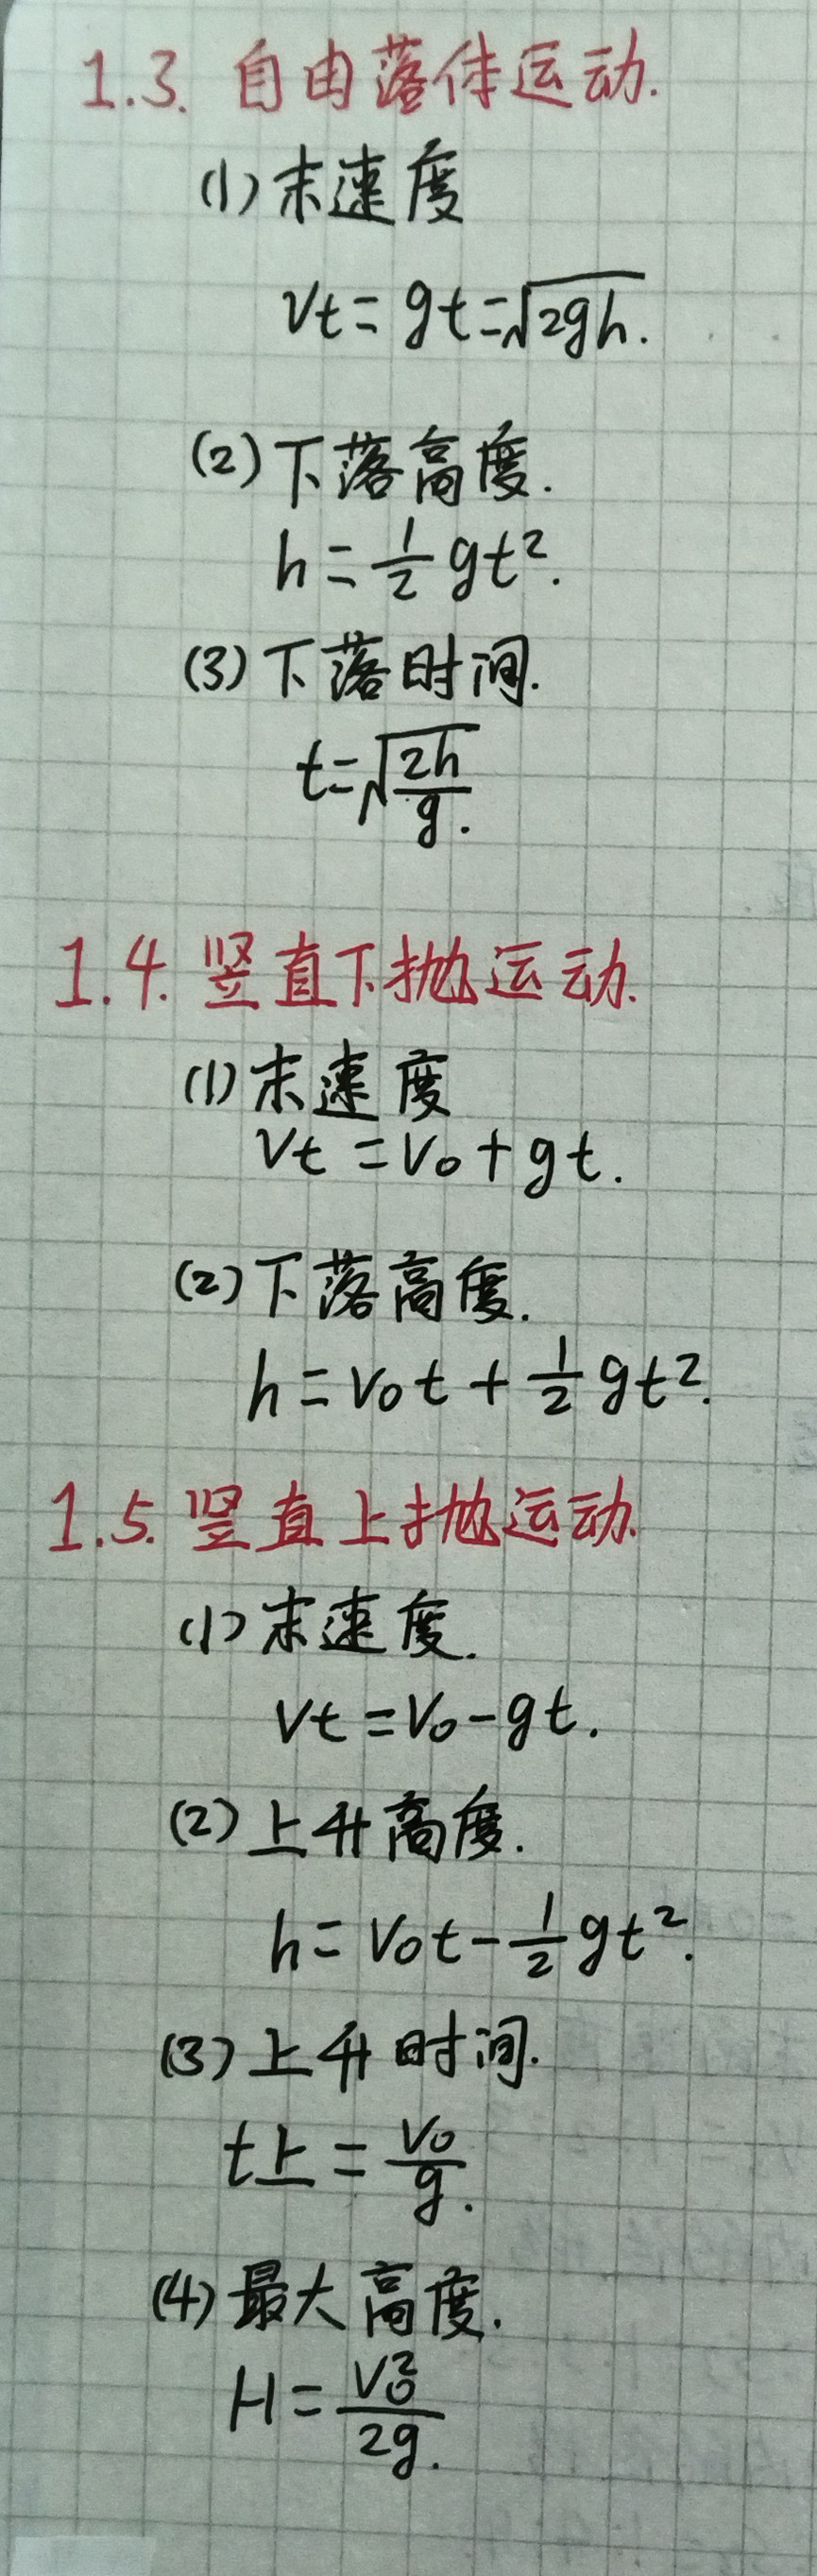 1.3. 自由落体运动.
(1) 末速度
Vt = gt = √2gh.
(2) 下落高度.
h = 1/2 gt².
(3) 下落时间.
t = √2h/g.
1.4. 竖直下抛运动.
(1) 末速度
Vt = V₀ + gt.
(2) 下落高度.
h = V₀t + 1/2 gt².
1.5. 竖直上抛运动.
(1) 末速度.
Vt = V₀ - gt.
(2) 上升高度.
h = V₀t - 1/2 gt².
(3) 上升时间.
t上 = V₀/g.
(4) 最大高度.
H = V₀²/2g.